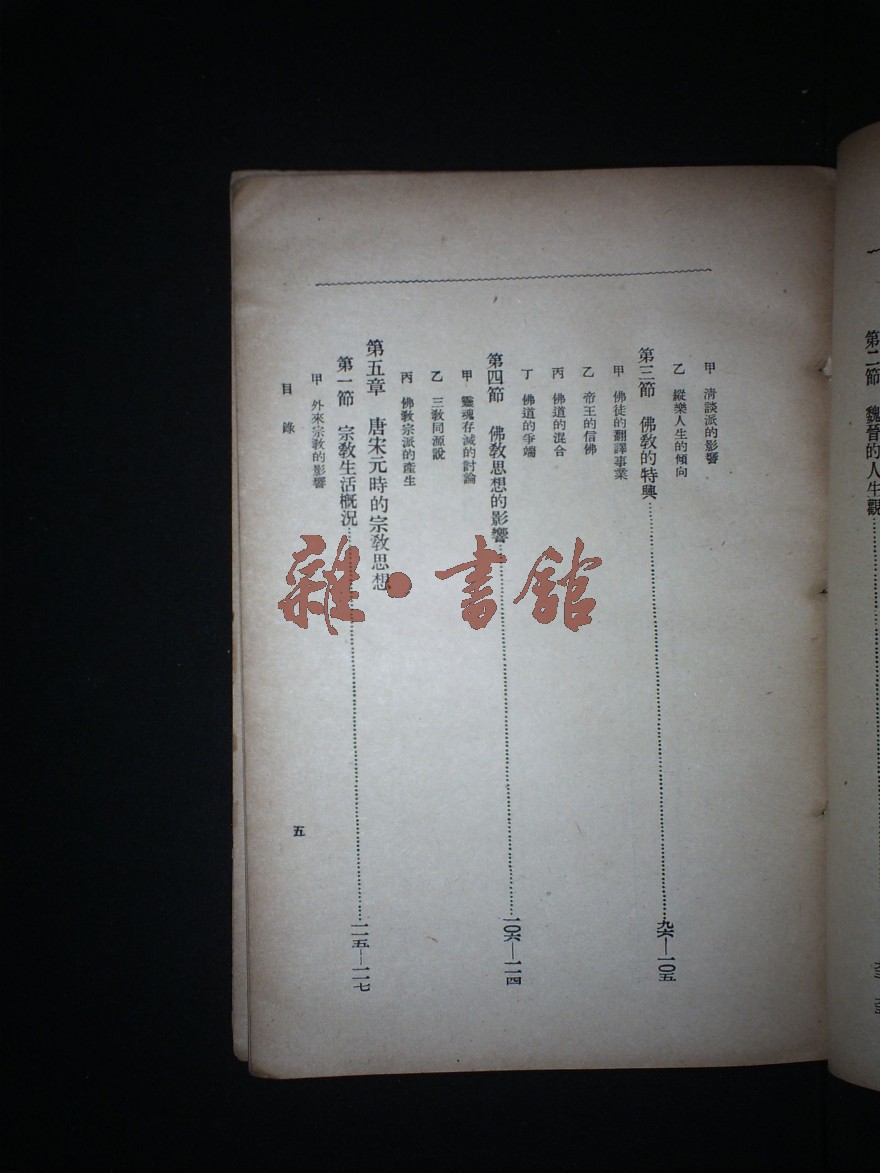 第二節　魏晉的人生觀
甲　淸談派的影響
乙　縱樂人生的傾向
第三節　佛敎的特興……九六—一〇五
甲　佛徒的翻譯事業
乙　帝王的信佛
丙　佛道的混合
丁　佛道的爭端
第四節　佛敎思想的影響……一〇六—一一四
甲　靈魂存滅的討論
乙　三敎同源說
丙　佛敎宗派的產生
第五章　唐宋元時的宗敎思想
第一節　宗敎生活槪況……一一五—一一七
甲　外來宗敎的影響
目錄
五
雜·書館